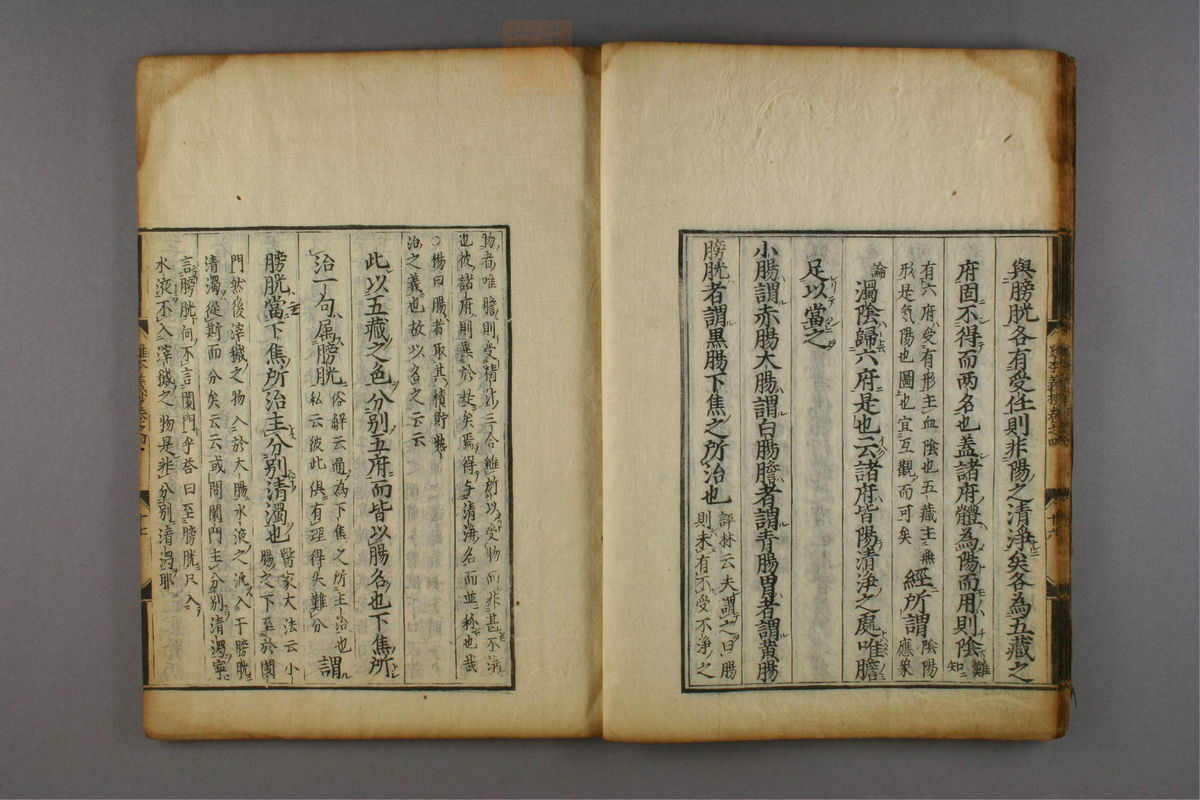 與膀胱各有受任則非陽之清淨矣各為五藏之
府固不得而两名也蓋諸府體為陽而用則陰難知
有六府受有形主血陰也五藏主無
形是氣陽也圖也宜互觀而可矣
經所謂陰陽應象
論濁陰歸六府是也云諸府皆陽清淨之處唯膽
足以當之
小腸謂赤腸大腸謂白腸膽者謂青腸胃者謂黄腸
膀胱者謂黒腸下焦之所治也
評林云夫謂之曰腸
則未有不受不淨之
物者唯膽則受精汁三合雖所以受物而非甚不淨
也彼諸府則異於是矣焉得与清淨名而並称也哉
○腸曰腸者取其積貯熟
治之義也故以名之云云
此以五藏之色分別五府而皆以腸名也下焦所
治一句属膀胱
俗解云通為下焦之所主治也
私云彼此俱有理得失難分
謂
膀胱當下焦所治主分別清濁也
醫家大法云小
腸之下至於闌
門然後滓穢之物入於大腸水液之流入于膀胱
清濁從斯而分矣云云或問闌門主分別清濁寧
言膀胱何不言闌門乎答曰至膀胱只入
水液不入滓穢之物是非分別清濁耶